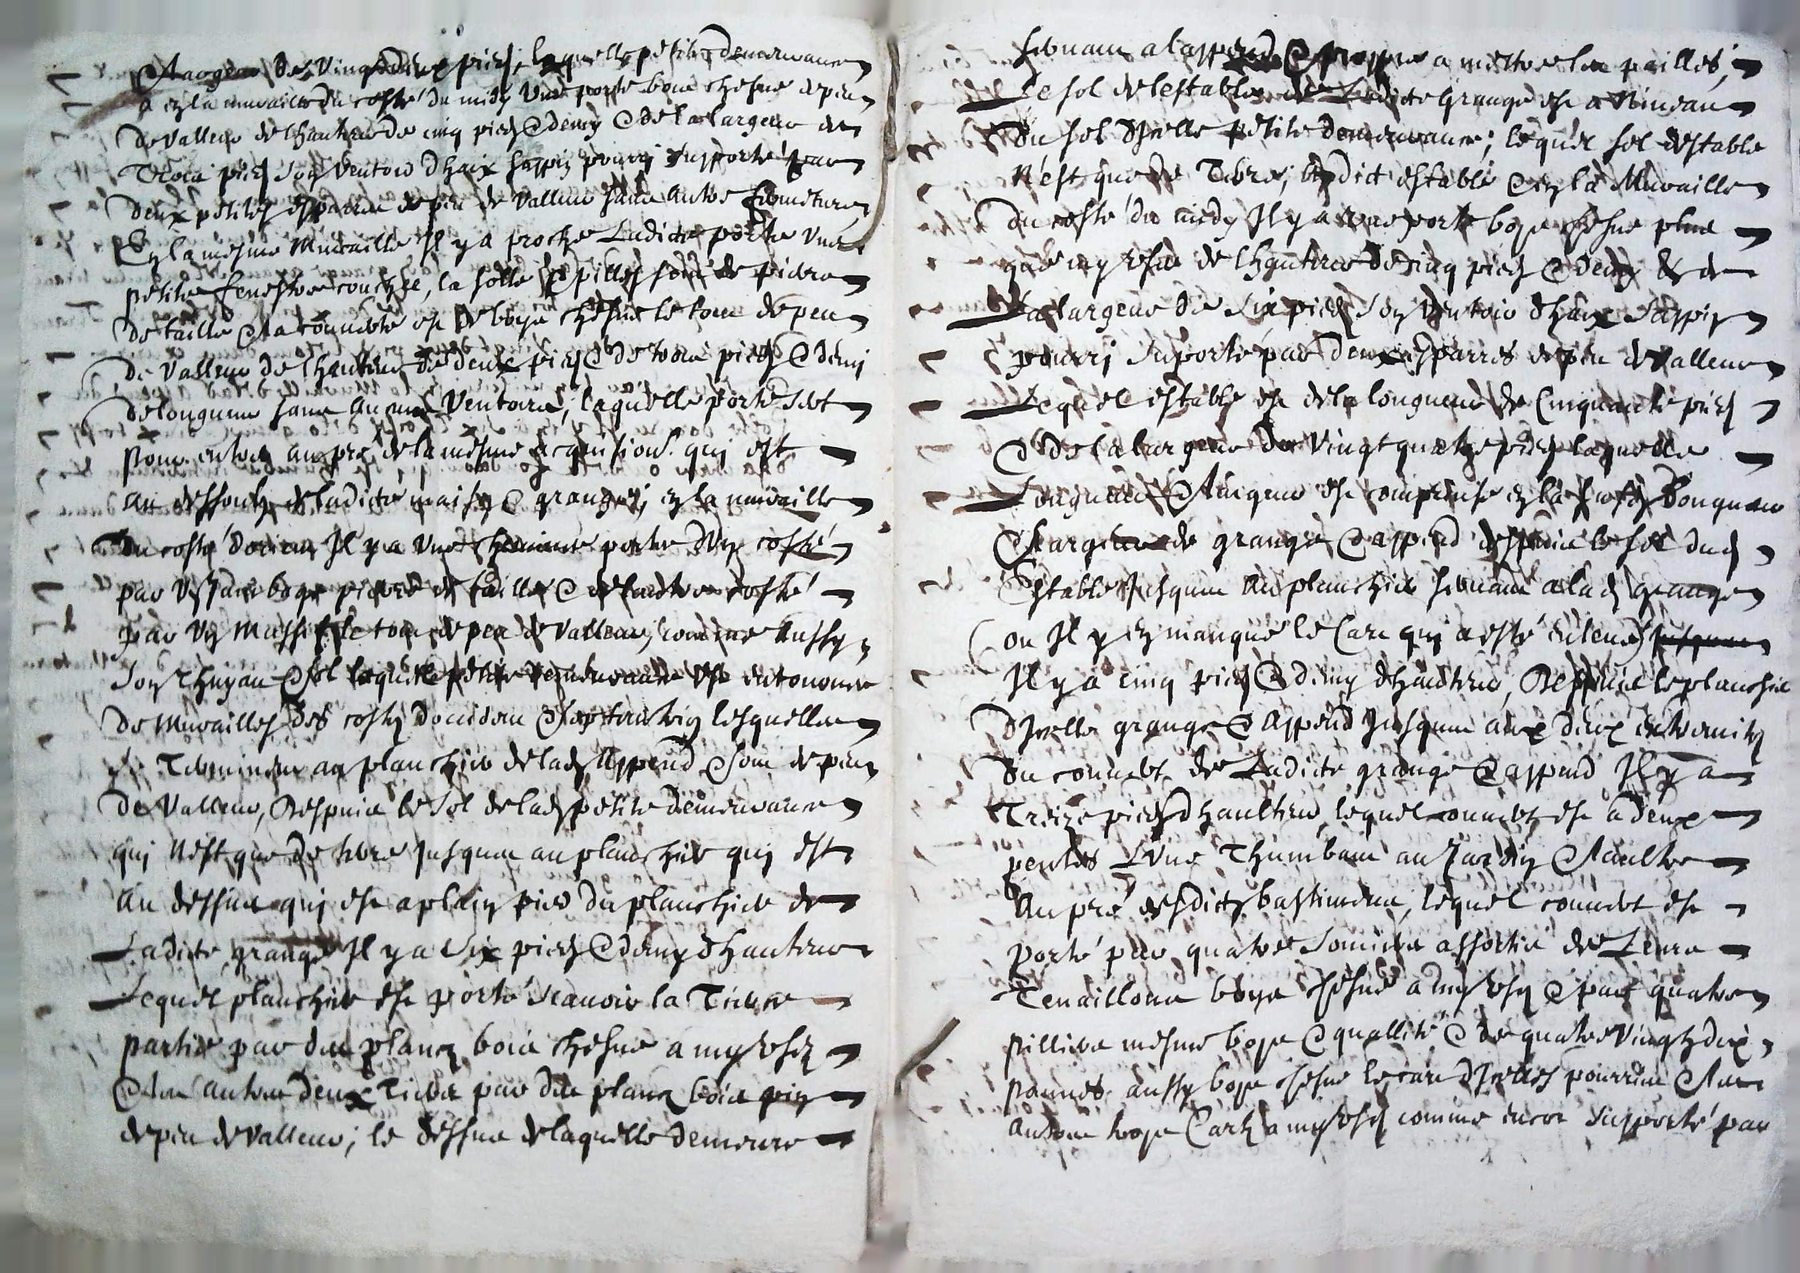 & largeur de vingt deux pieds, laquelle petite demeurance
a en la muraille du costé du midy une porte bois chesne de peu
de valleur de lhauteur de cinq pieds & demy & de la largeur de
trois pieds son ventois d'haix sappin pourry supporté par
deux petites esparres de peu de valleur sans autre
En la mesme muraille Il y a proche Ladicte porte une
petite fenestre couchée, la solle & pilles sont de pierre
de taille & la couverte est de boys chesne le tout de peu
de valleur de lhauteur de deux pieds & de trois pieds & demi
de longueur sans aucuns ventoirs, laquelle porte sert
pour entrer au pré de la mesme acquisition qui est
au dessoubz de ladicte maison & grange, en la muraille
du costé d'orient Il y a une cheminée portée d'un costé
par un pierre de taille & de lautre costé
par un massif le tout de peu de valleur, comme aussy
son thuyau & sol laquelle petite demeurance est entournée
de murailles des costés d'occident & septentrion lesquelles
Terminent au planchier de lad. Append & sont de peu
de valleur, Despuis le sol de lad. petite demeurance
qui n'est que de terre jusques au planchier qui est
au dessus qui est a plain pied du planchier de
Ladicte grange Il y a six pieds & demy d'hauteur
Lequel planchier est porté scavoir la Tierce
partie par du planc bois chesne a my usé
& les autres deux Tiers par du planc bois
de peu de valleur; le dessus de laquelle demeure
servant a lappend & propre a mettre les pailles,
Le sol de lestable de Ladicte grange est a Niveau
du sol d'Icelle petite demeurance; lequel sol destable
N'est que de Terre; ledict estable & en la Muraille
du costé du midy Il y a une porte boys chesne plus
que my usée de lhauteur de cinq pieds & demy & de
La largeur de six pieds son ventois d'haix sappin
pourri suporté par deux esparres de peu de valleur
Lequel estable est de la longueur de Cinquante pieds
& de la largeur de vingt quatre pieds laquelle
Longueur & largeur est comprinse en la susd. longueur
& largeur de grange & append despuis le sol dud.
Estable jusques au planchier servant a lad. grange
(ou Il y en manque le Cart qui a esté enlevé)
Il y a cinq pieds & demy d'hauteur, Despuis le planchier
d'Icelle grange & append Jusques aux deux extremités
du couvert de Ladicte grange & append Il y a
Treize pieds d'haulteur, lequel couvert est a deux
pentes L'une Thumbant au Jardin & laultre
Au pré desdicts bastimens, lequel couvert est
porté par quatre somiers assortis de Leurs
Tenaillons boys chesne a my usés & par quatre
pilliers mesme boys & quallité & de quatre vingtz dix
pannes aussy boys chesne le cart d'Icelles pourries & les
autres trois Cartz a my usés comme encor supporté par